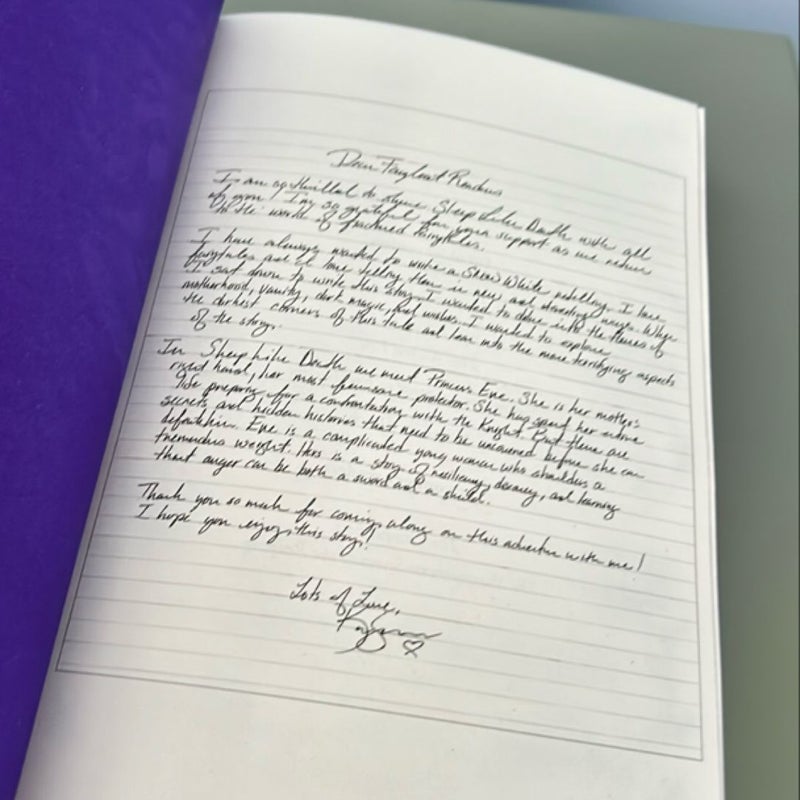 Dear Fairyloot Readers
I am so thrilled to share Sleep Like Death with all
of you! I'm so grateful for your support as we return
to the world of fractured fairytales.
I have always wanted to write a Snow White retelling. I love
fairytales and I love telling them in new and interesting ways. When
I sat down to write this story, I wanted to delve into the themes of
motherhood, vanity, dark magic, and wishes. I wanted to explore
the darkest corners of this tale and lean into the more terrifying aspects
of the story.
In Sleep Like Death we meet Princess Eve. She is her mother's
right hand, her most fearsome protector. She has spent her entire
life preparing for a confrontation with the Knight. But there are
secrets and hidden histories that need to be uncovered before she can
defeat him. Eve is a complicated young woman who shoulders a
tremendous weight. Hers is a story of resiliency, and learning
that anger can be both a sword and a shield.
Thank you so much for coming along on this adventure with me!
I hope you enjoy this story!
Lots of Love,